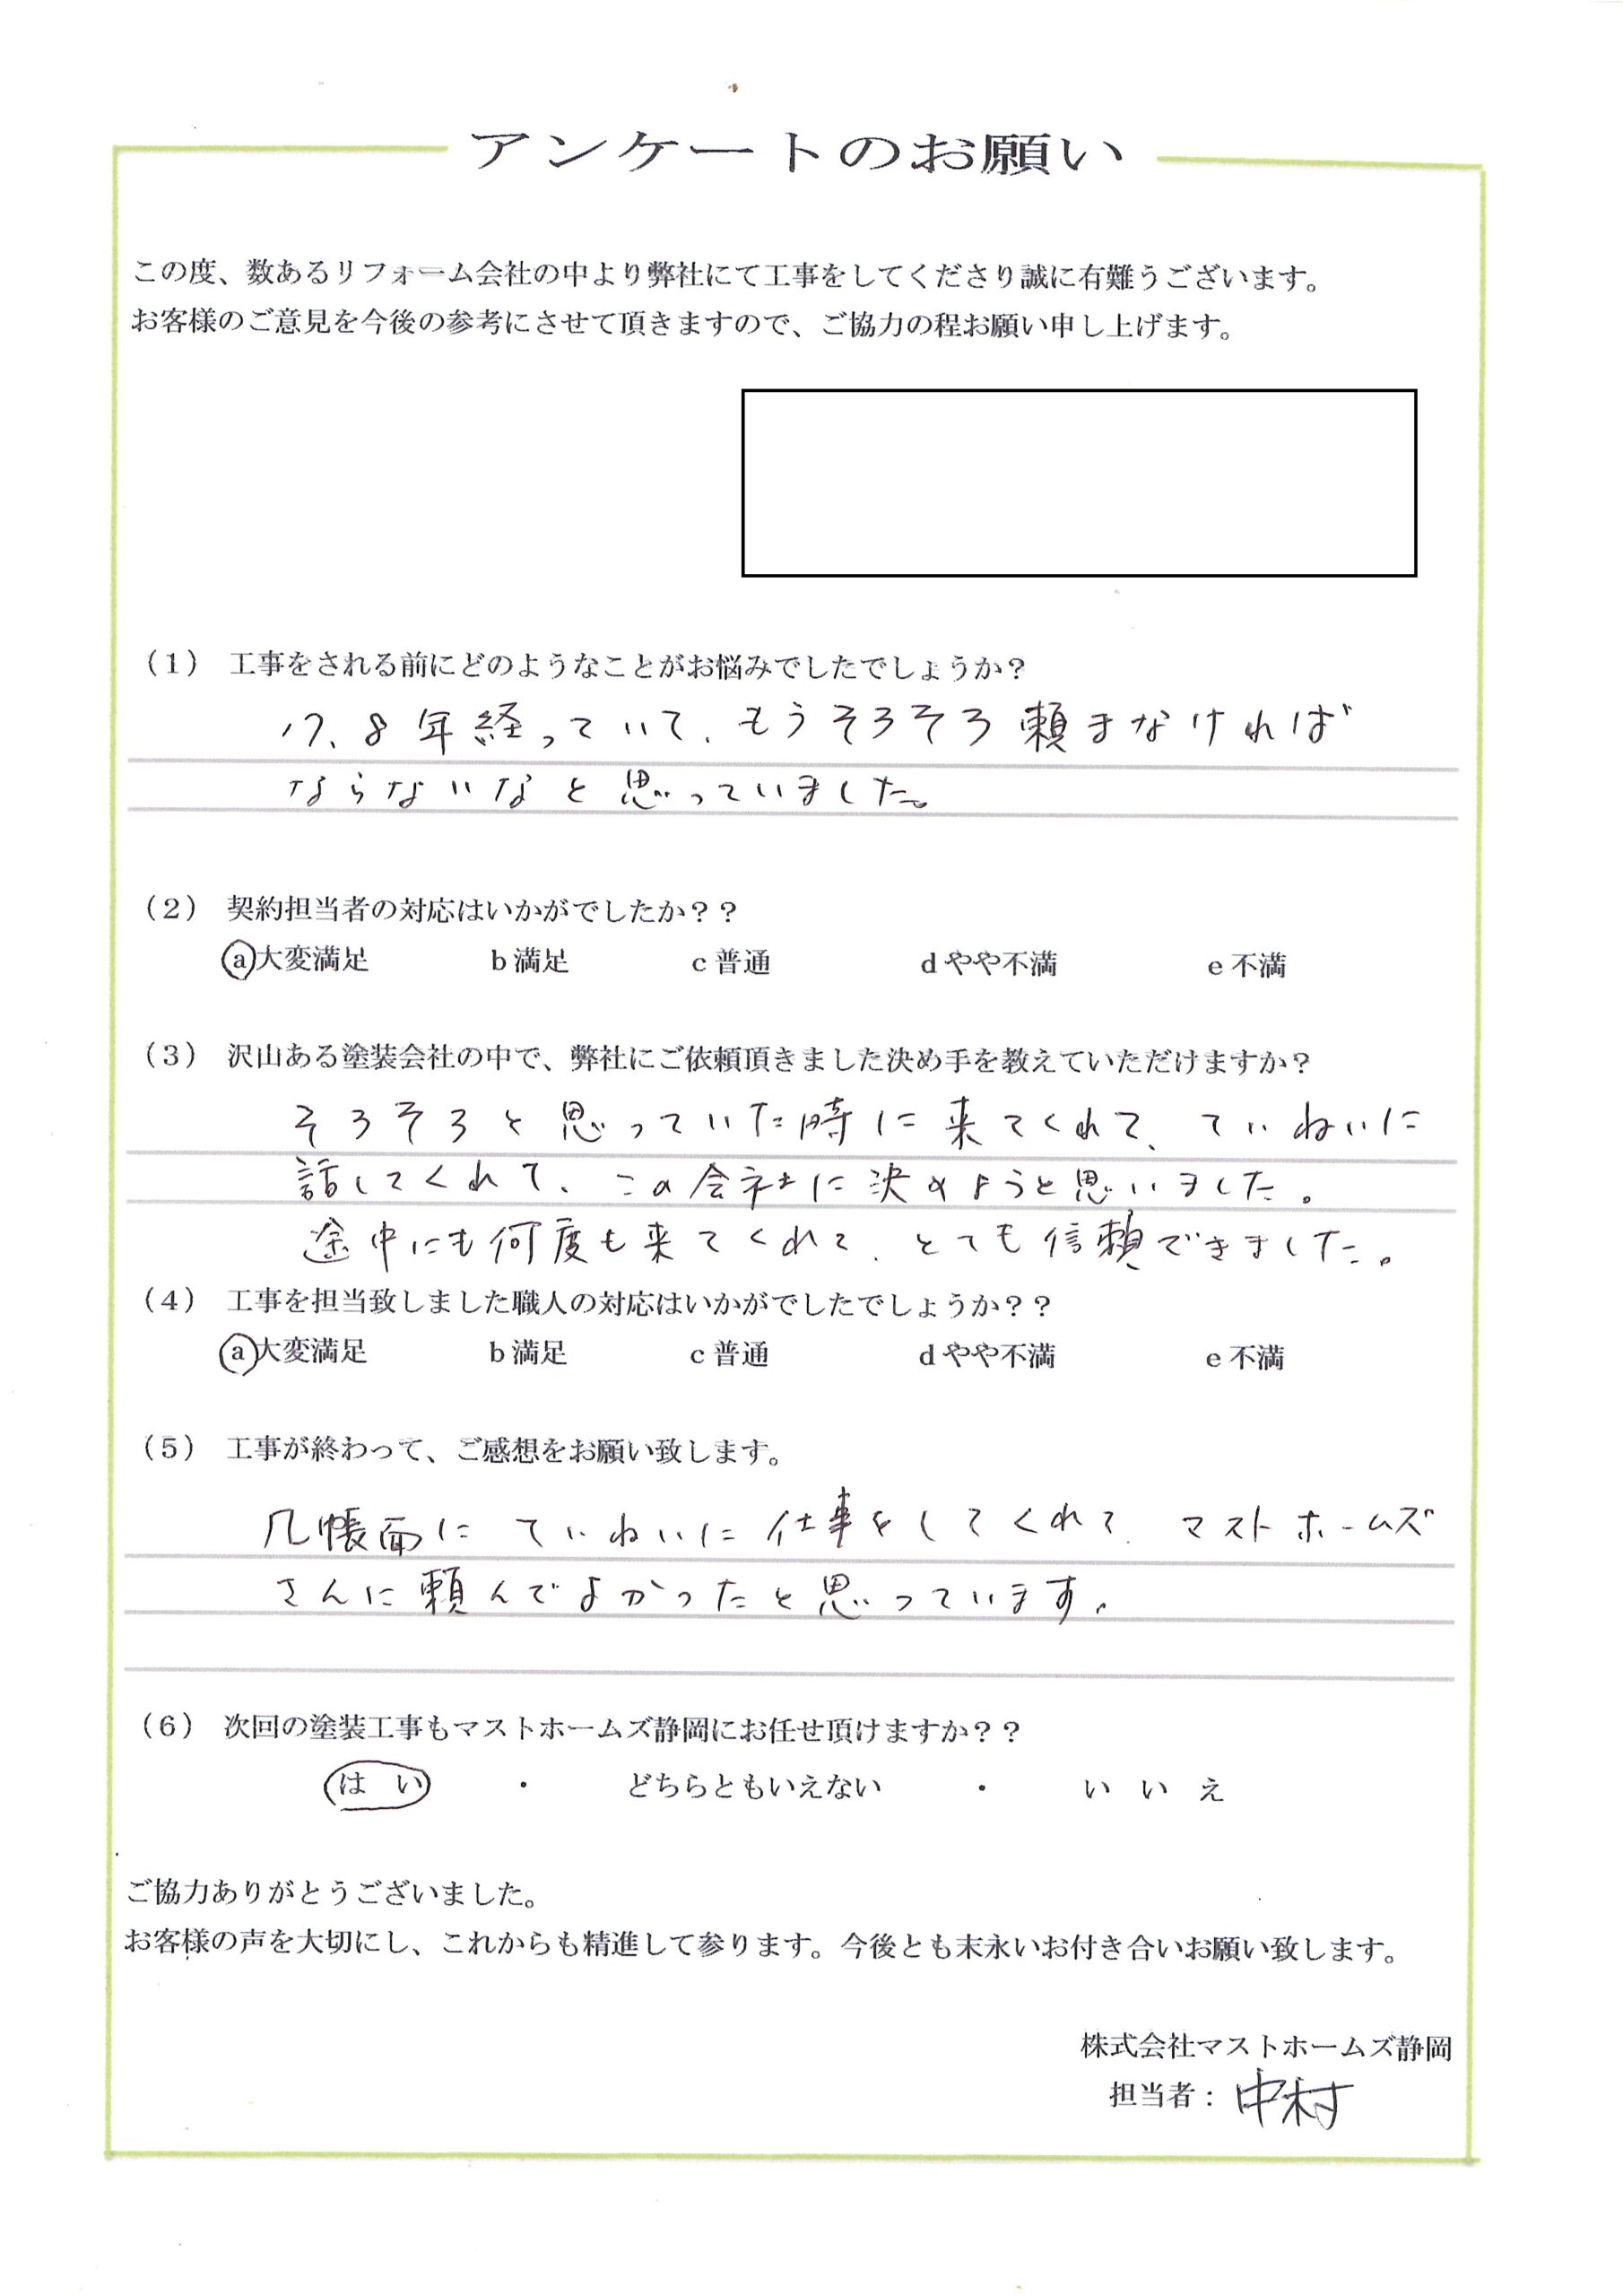 アンケートのお願い
この度、数あるリフォーム会社の中より弊社にて工事をしてくださり誠に有難うございます。
お客様のご意見を今後の参考にさせて頂きますので、ご協力の程お願い申し上げます。
(1) 工事をされる前にどのようなことがお悩みでしたでしょうか?
17、8年経っていて、もうそろそろ頼まなければ
ならないなと思っていました。
(2) 契約担当者の対応はいかがでしたか??
a大変満足 b満足 c普通 dやや不満 e不満
(3) 沢山ある塗装会社の中で、弊社にご依頼頂きました決め手を教えていただけますか?
そろそろと思っていた時に来てくれて、ていねいに
話してくれて、この会社に決めようと思いました。
途中にも何度も来てくれて、とても信頼できました。
(4) 工事を担当致しました職人の対応はいかがでしたでしょうか??
a大変満足 b満足 c普通 dやや不満 e不満
(5) 工事が終わって、ご感想をお願い致します。
几帳面にていねいに仕事をしてくれて、マストホームズ
さんに頼んでよかったと思っています。
(6) 次回の塗装工事もマストホームズ静岡にお任せ頂けますか??
はい ・ どちらともいえない ・ いいえ
ご協力ありがとうございました。
お客様の声を大切にし、これからも精進して参ります。今後とも末永いお付き合いお願い致します。
株式会社マストホームズ静岡
担当者:中村